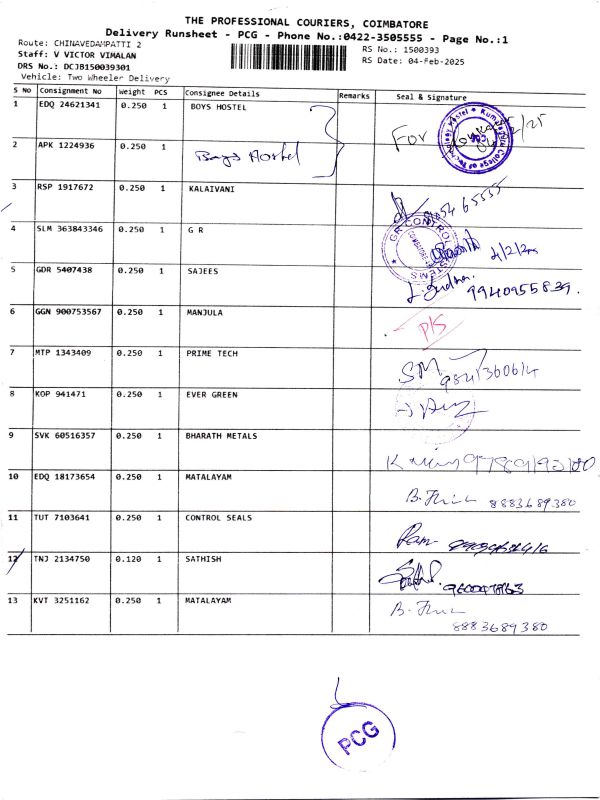 THE PROFESSIONAL COURIERS, COIMBATORE
Delivery Runsheet - PCG - Phone No.:0422-3505555 - Page No.:1
Route: CHINAVEDAMPATTI 2
RS No.: 1500393
Staff: V VICTOR VIMALAN
RS Date: 04-Feb-2025
DRS No.: DCJB150039301
Vehicle: Two Wheeler Delivery
S No Consignment No Weight PCS Consignee Details Remarks Seal & Signature
1 EDQ 24621341 0.250 1 BOYS HOSTEL
For
2 APK 1224936 0.250 1 Boys Hostel
3 RSP 1917672 0.250 1 KALAIVANI
4 SLM 363843346 0.250 1 G R
GR CONTROL
4/2/25
5 GDR 5407438 0.250 1 SAJEES
9940955839.
6 GGN 900753567 0.250 1 MANJULA
P/S
7 MTP 1343409 0.250 1 PRIME TECH
SM
8 KOP 941471 0.250 1 EVER GREEN
9 SVK 60516357 0.250 1 BHARATH METALS
10 EDQ 18173654 0.250 1 MATALAYAM
8883689380
11 TUT 7103641 0.250 1 CONTROL SEALS
Ram
12 TNJ 2134750 0.120 1 SATHISH
13 KVT 3251162 0.250 1 MATALAYAM
8883689380
PCG